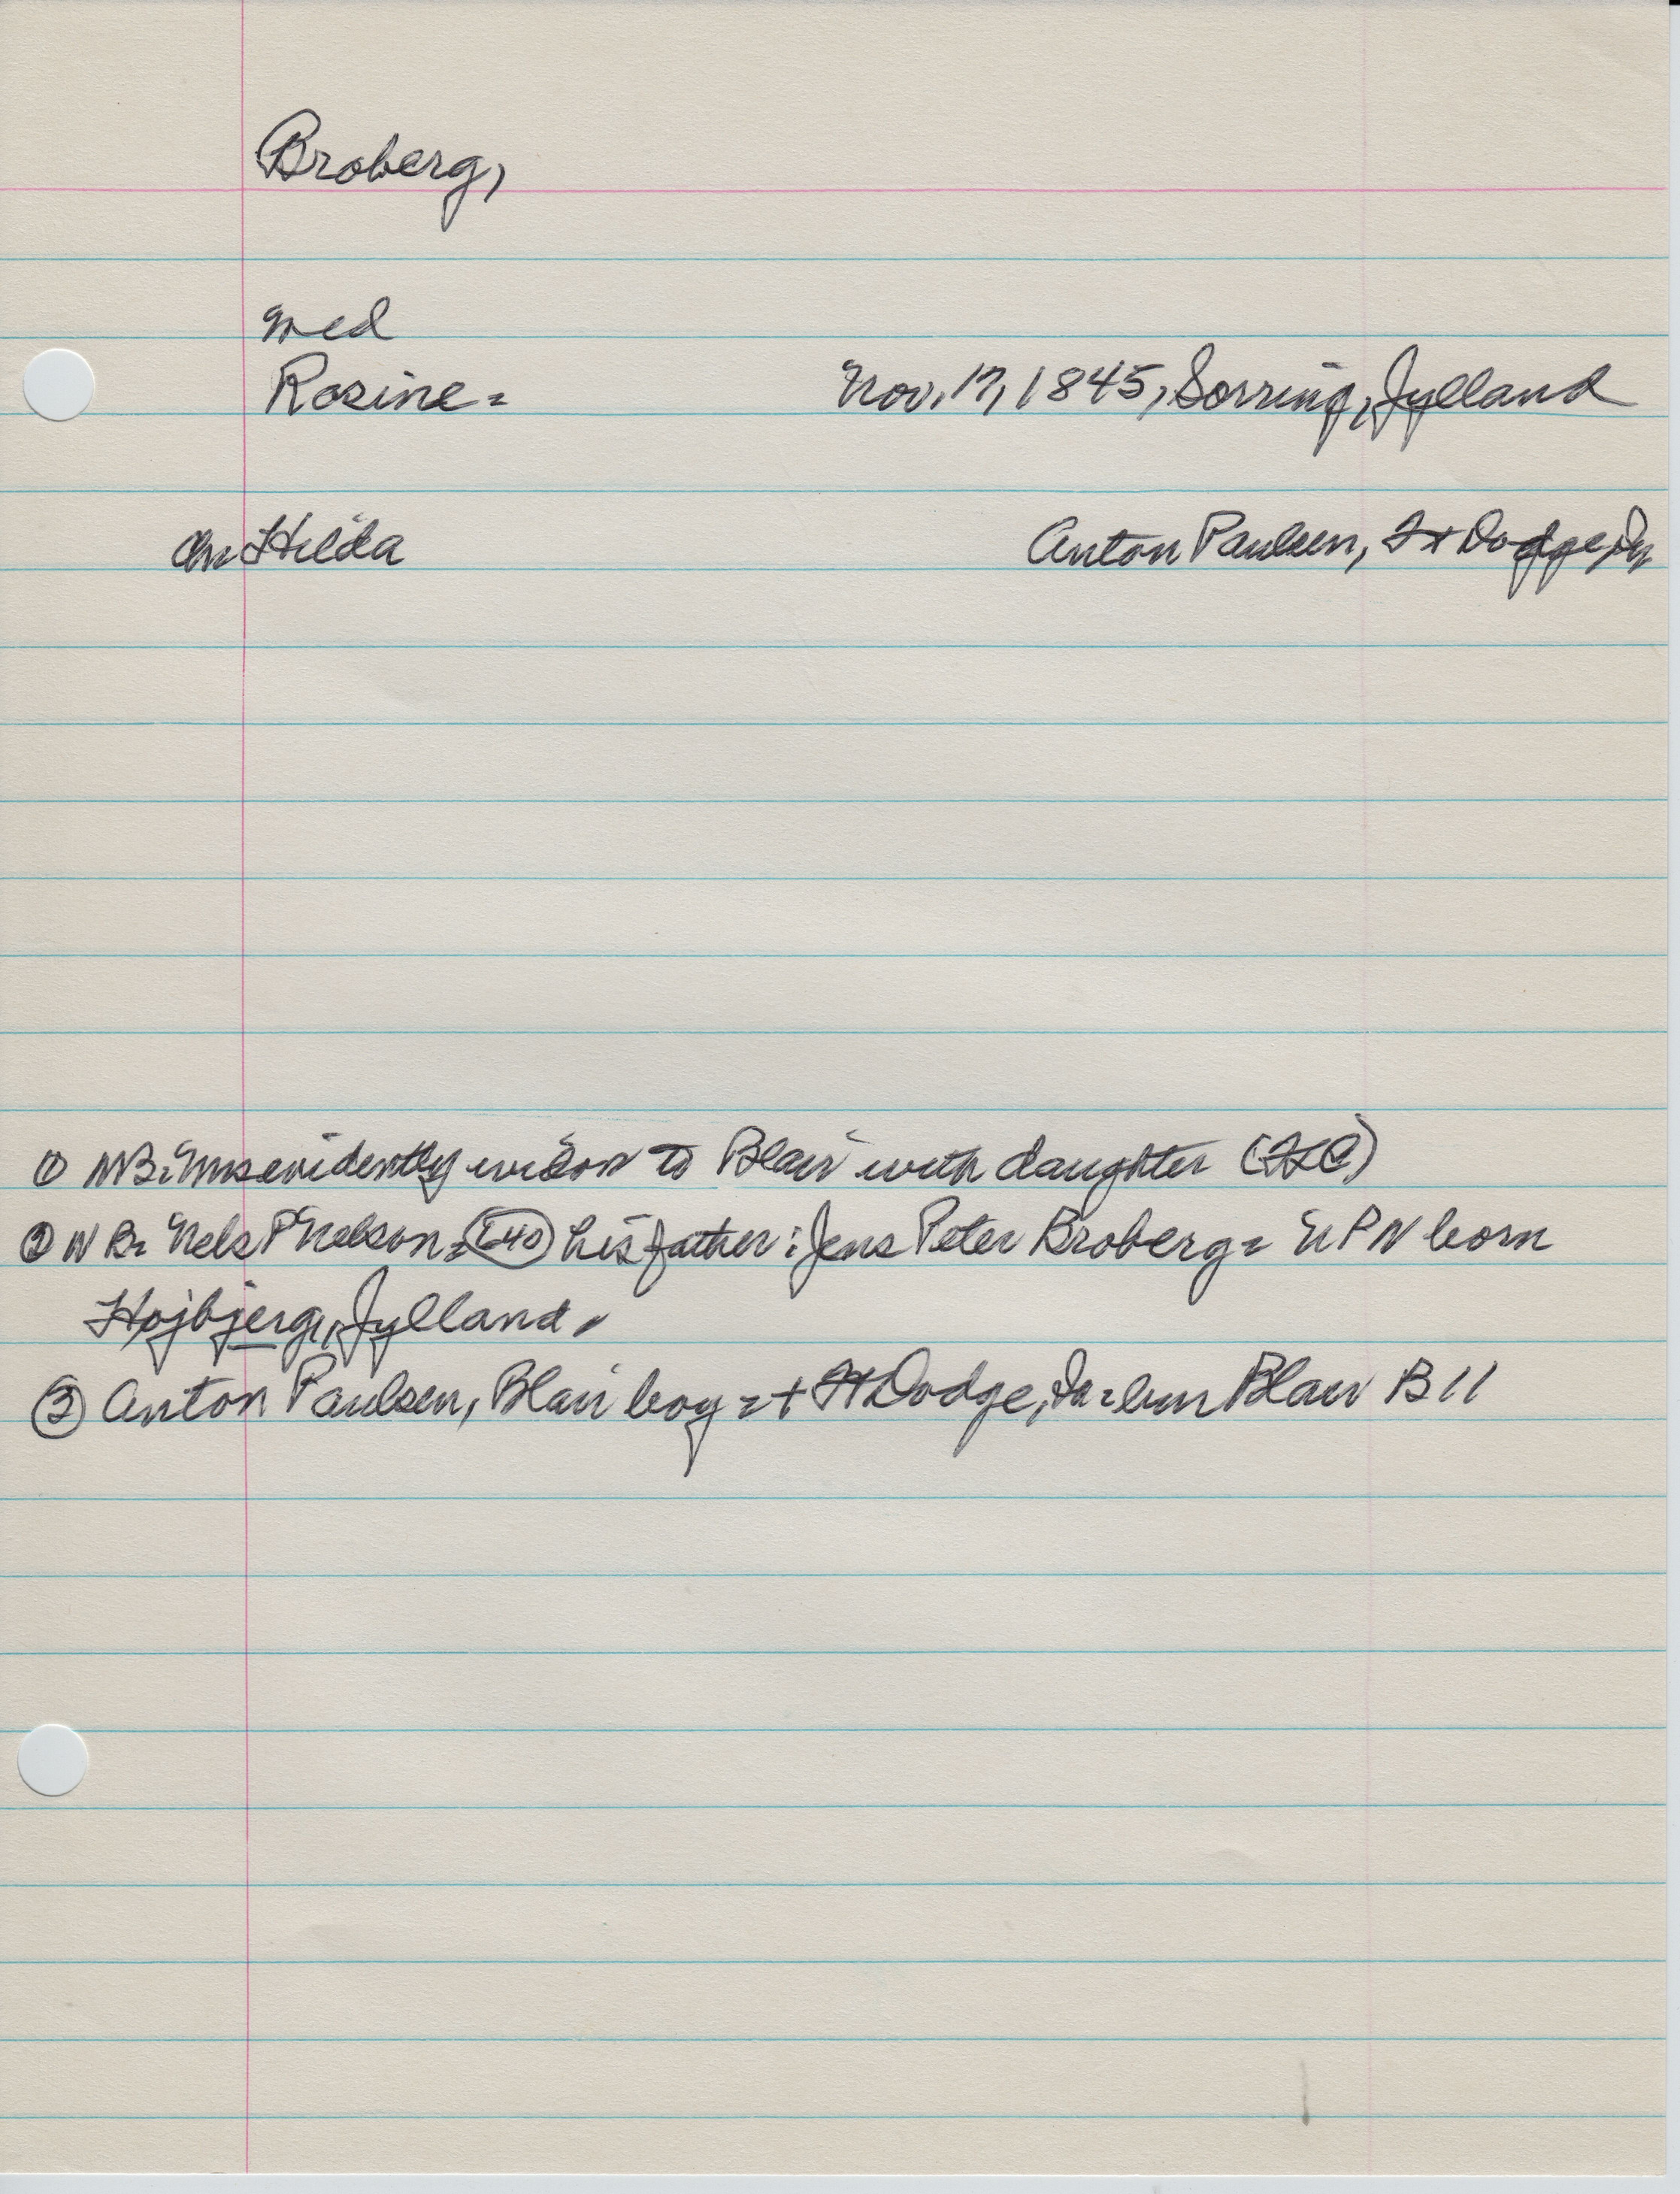 Broberg,
med
Rosine= Nov. 17, 1845, Sorring, Jylland
Chr Hilda Anton Paulsen, Ft Dodge, Ia
① NB: Mrs evidently widow to Blair with daughter
② NB: Nels P Nelson= his father: Jens Peter Broberg= NPN born
Hojbjerg, Jylland.
③ Anton Paulsen, Blair boy=+ Ft Dodge, Ia= bur Blair B11